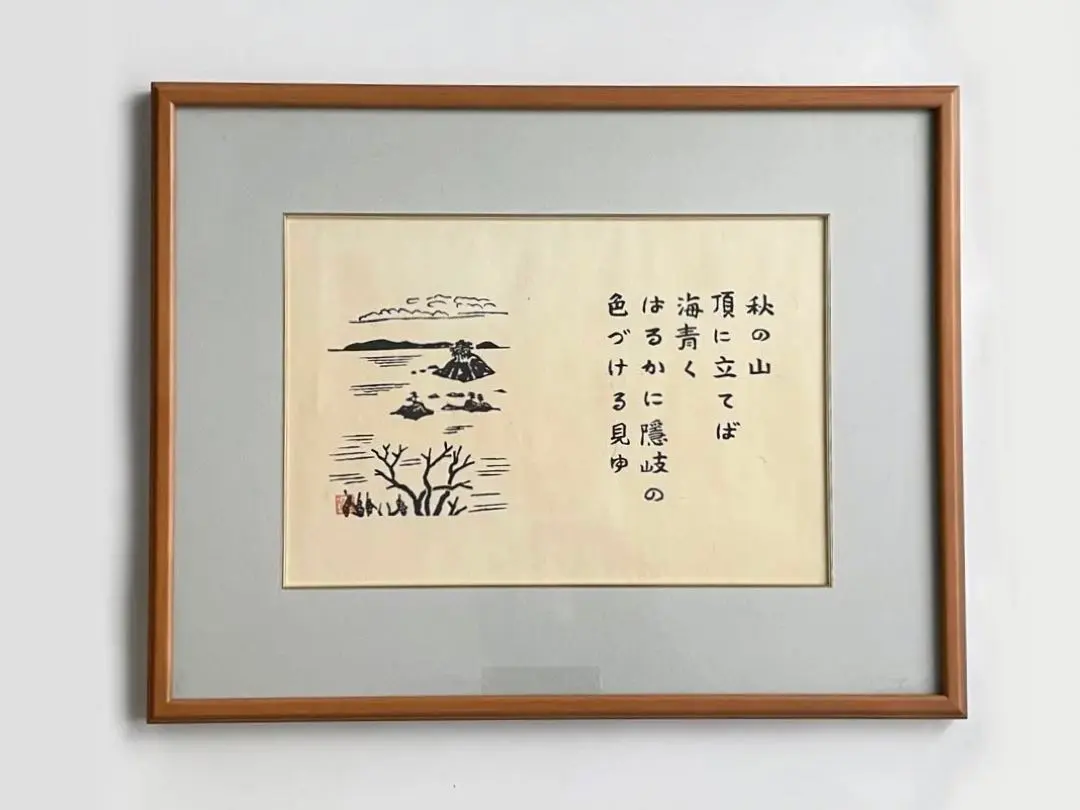 秋の山
頂に立てば
海青く
はるかに隠岐の
色づける見ゆ